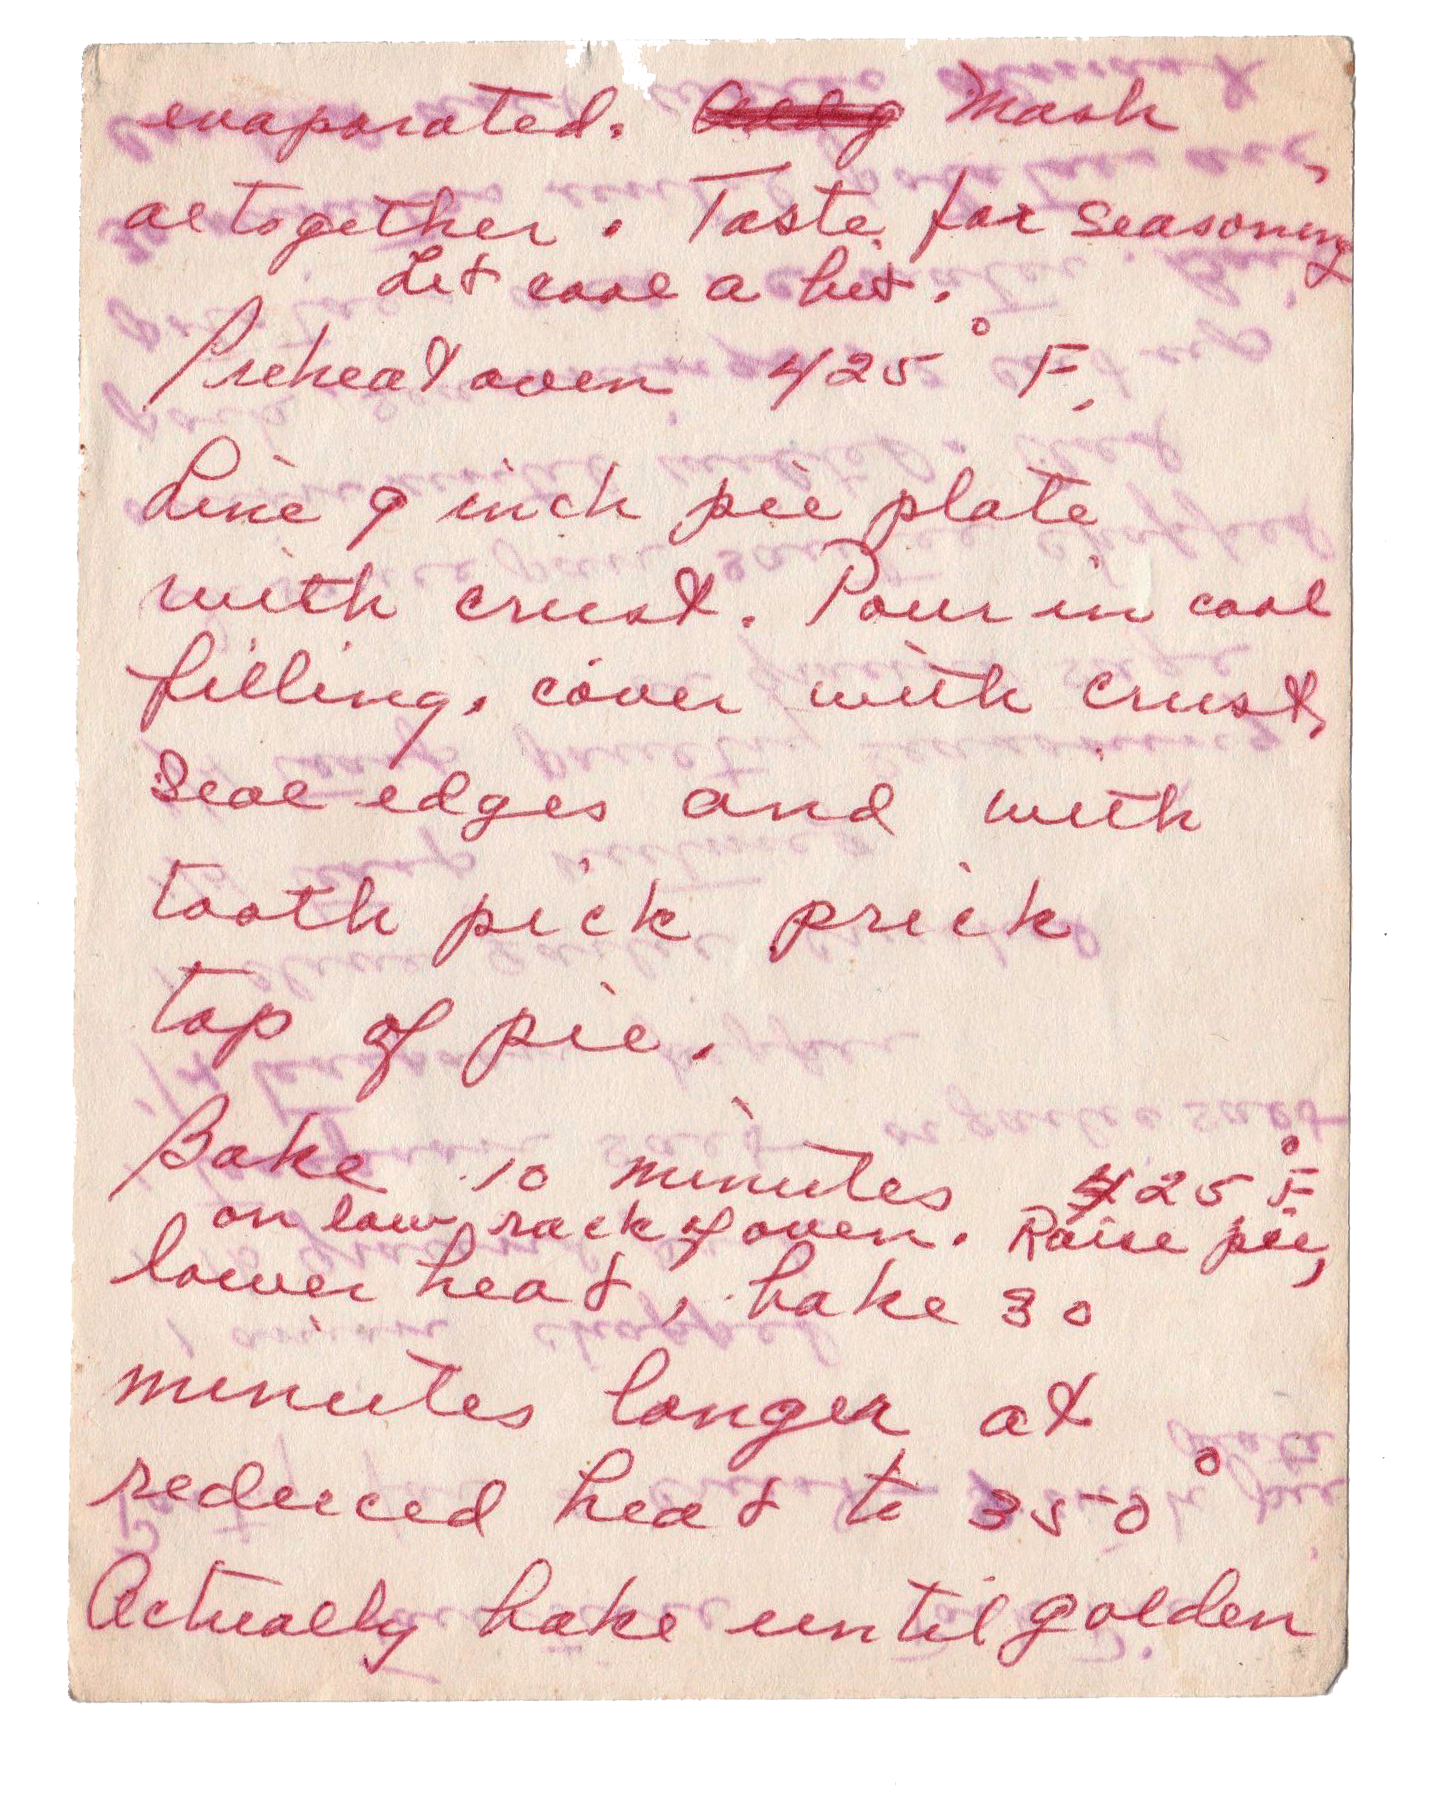 evaporated. Mash
altogether. Taste for seasoning,
Let cool a bit.
Preheat oven 425° F.
Line 9 inch pie plate
with crust. Pour in cool
filling. cover with crust,
Seal edges and with
tooth pick prick
top of pie.
Bake 10 minutes 425° F
on low rack of oven. Raise pie,
lower heat, bake 30
minutes longer at
reduced heat to 350°
Actually bake until golden